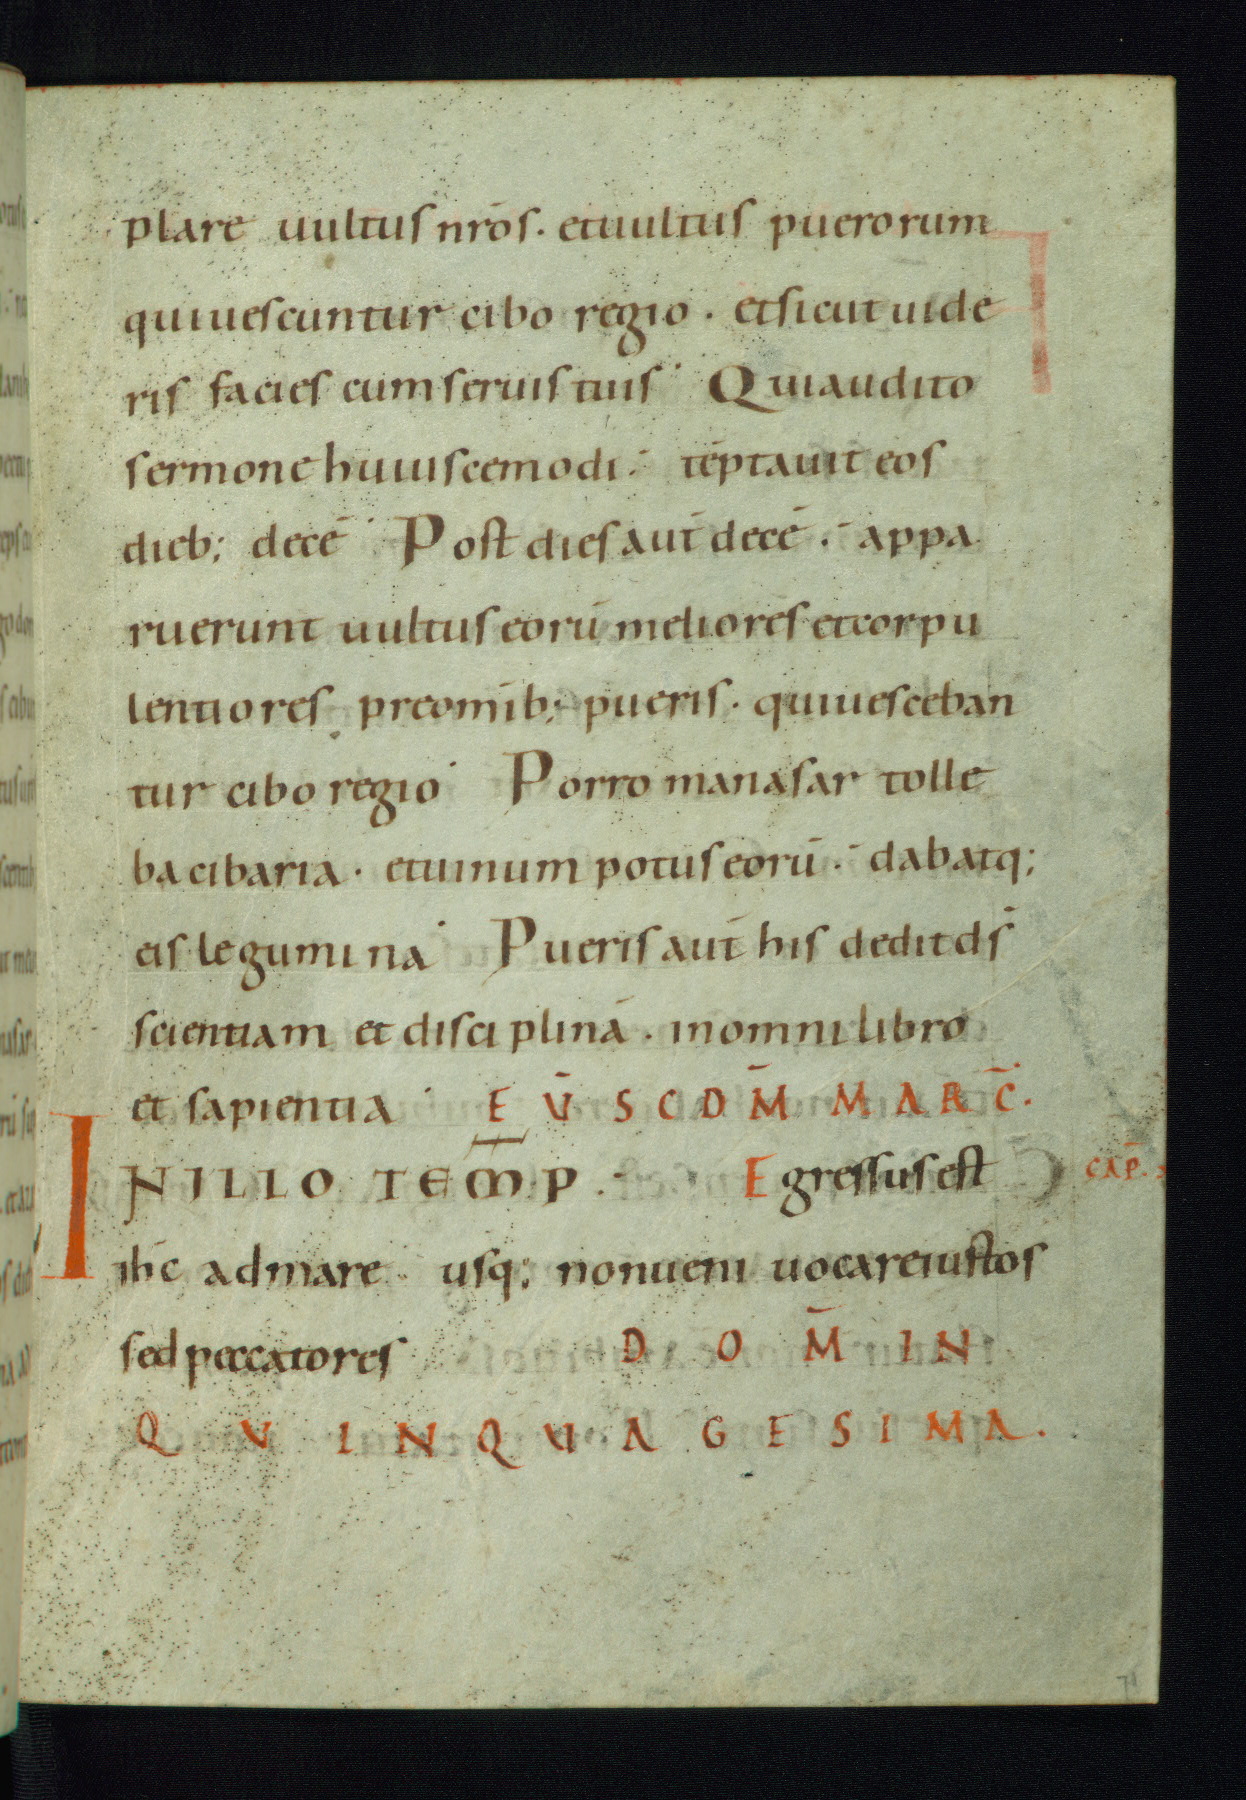 plare uultus nr̄os. et uultus puerorum
qui uescuntur cibo regio. et sicut uide
ris facies cum seruis tuis. Qui audito
sermone huiuscemodi. tēptauit eos
dieb; decē. Post dies aut̄ decē. appa
ruerunt uultus eorū meliores et corpu
lentiores pre om̄ib; pueris. qui uesceban
tur cibo regio. Porro manasar tolle
ba cibaria. et uinum potus eorū. dabatq;
eis legumina. Pueris aut̄ his dedit ds̄
scientiam et disciplinā. in omni libro
et sapientia. EV̄ SCDM̄ MARC̄.
IN ILLO TEM̄P. Egressus est CAP̄.
ih̄c ad mare. usq; non ueni uocare iustos
sed peccatores DOM̄ IN
QVINQUAGESIMA.